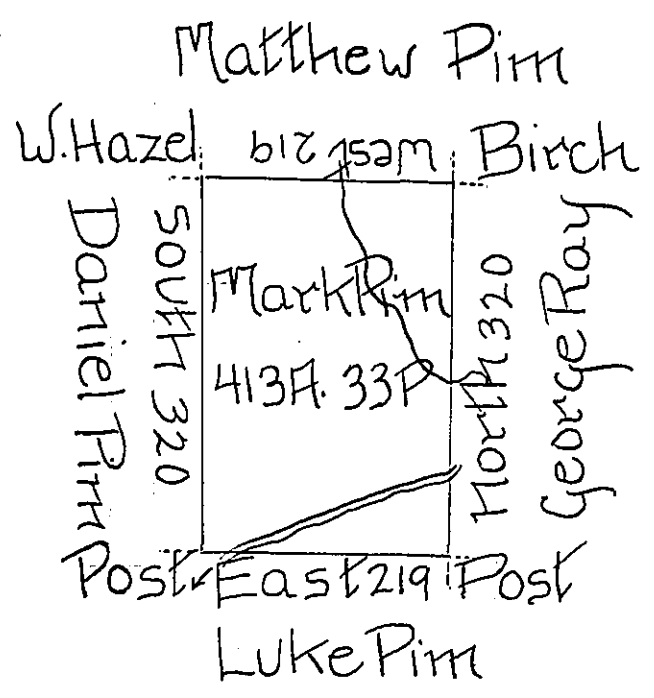 Matthew Pim
W.Hazel West 219 Birch
Daniel Pim
South 320
Mark Pim
413A. 33P
North 320
George Ray
Post East 219 Post
Luke Pim